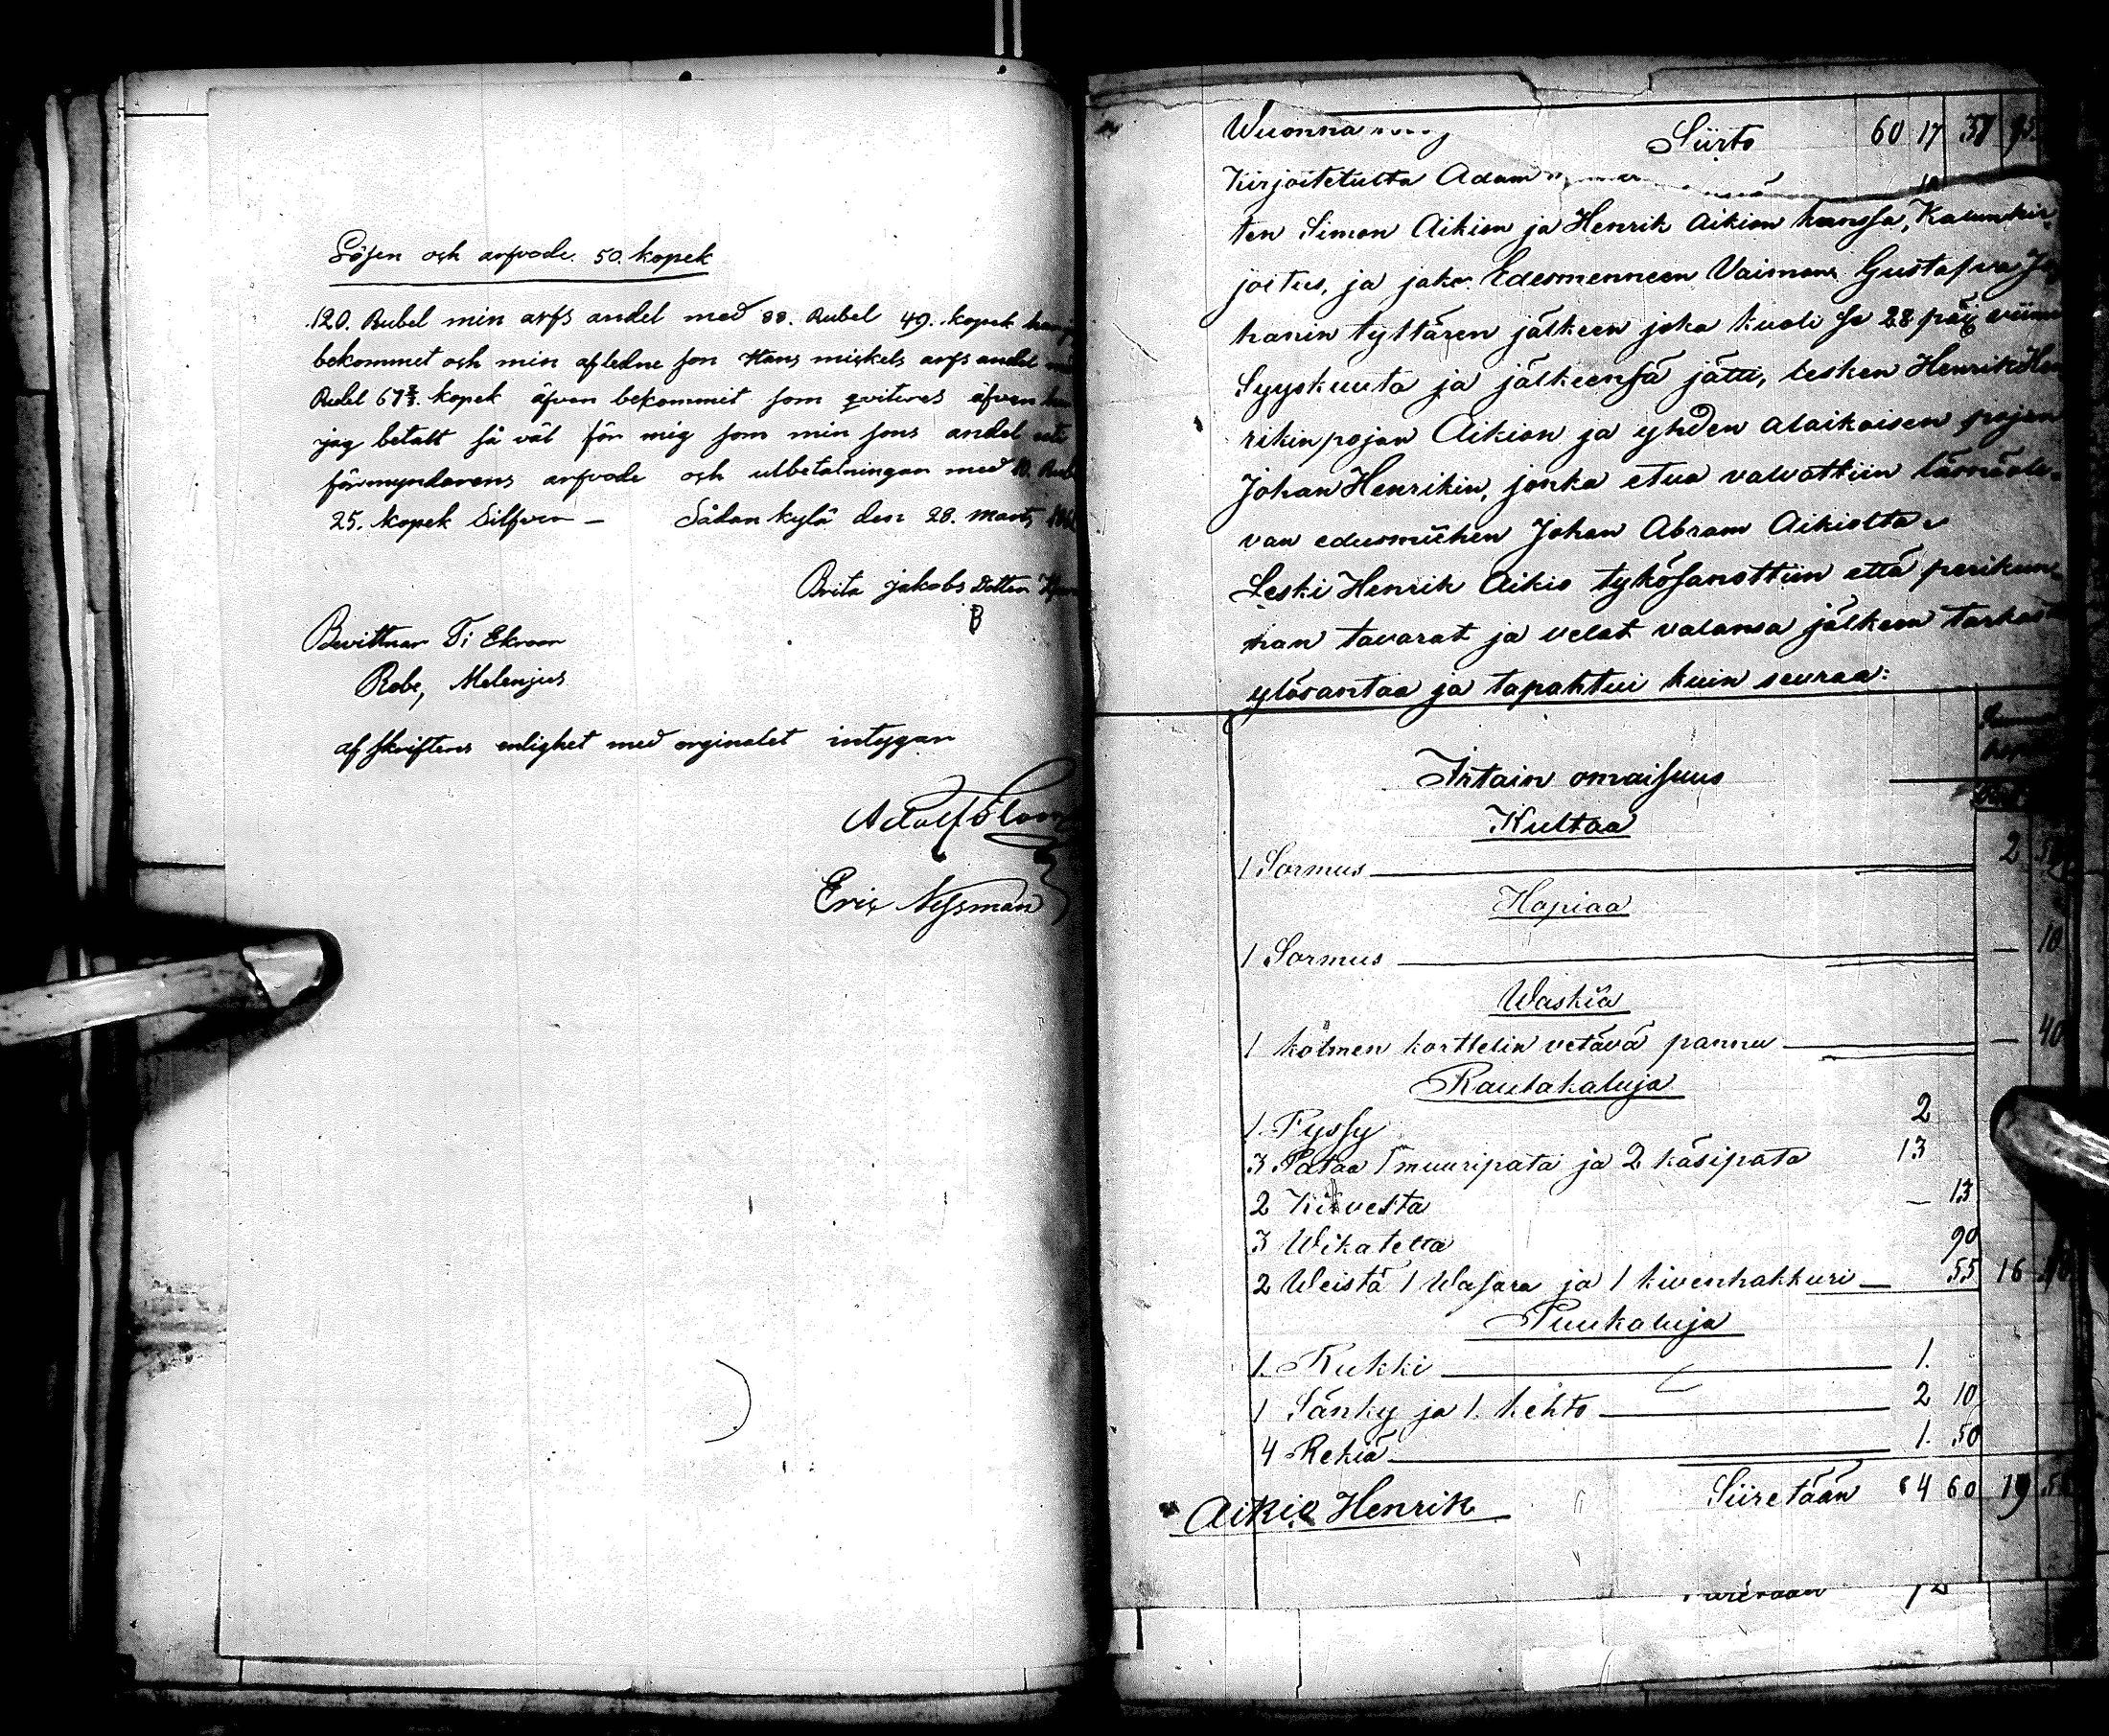 Lösen och arfvode. 50. kopek
120. Rubel min arfs andel med 88. Rubel 49. kopek
bekommet och min aflednе son Hans mickels arfs andel
Rubel 67 3/4. kopek äfven bekommit som qviteres äfven
jag betalt så väl för mig som min sons andel uti
förmyndarens arfvode och utbetalningan med 10. Rubel
25. kopek Silfver — Sådankylä den 28. Marts
Brita jakobs Dotter
B
Bevittnar Ti Ekroos
Robe, Melenjus
afskriftens enlighet med orginalet intygar
Adolf
Eric Nessman
Wuonna Siirto 60 17 37 95
Kirjoitetulta Adam
ten Simon Aikion ja Henrik Aikion kanssa, Kalunkir
joitus, ja jako Edesmenneen Vaimon Gustafva Jo
hanin tyttären jälkeen joka kuoli se 28 päiv viime
Syyskuuta ja jälkeensä jätti, lesken Henrik Hen
rikinpojan Aikion ja yhden alaikaisen pojan
Johan Henrikin, jonka etua valvottiin läsnäole-
van edusmiehen Johan Abram Aikiolta
Leski Henrik Aikio tykösanottiin että perikun-
nan tavarat ja velat valansa jälkeen tarkast
ylösantaa ja tapahtui kuin seuraa:
Irtain omaisuus
Kultaa
1 Sormus 2 50
Hopiaa
1 Sormus — 10
Waskia
1 kolmen korttelin vetävä pannu — 40
Rautakaluja
1 Pyssy 2
3 Pataa 1 muuripata ja 2 käsipata 13
2 Kirvesta — 13
3 Wikatetta 90
2 Weistä 1 Wasara ja 1 kivenhakkuri 55 16
Puukaluja
1. Rukki 1.
1 Sänky ja 1. kehto 2 10
4 Rekiä 1. 50
Aikio Henrik Siiretään 4 60 19